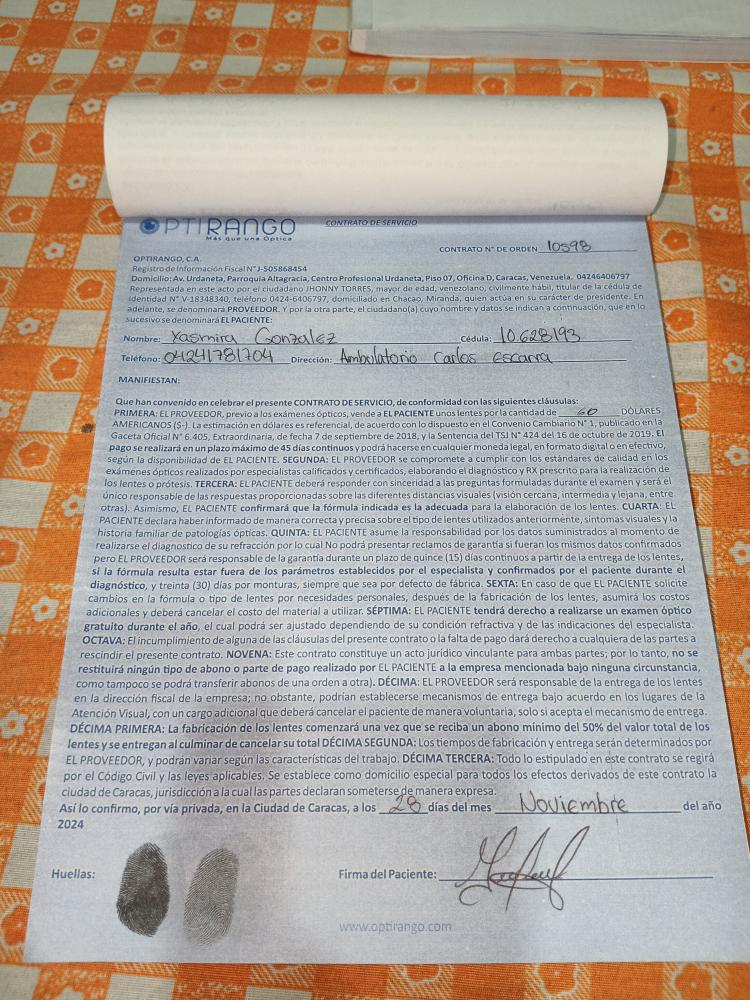 OPTIRANGO
Más que una Óptica
CONTRATO DE SERVICIO
CONTRATO N° DE ORDEN 10598
OPTIRANGO, C.A.
Registro de Información Fiscal N° J-505868454
Domicilio: Av. Urdaneta, Parroquia Altagracia, Centro Profesional Urdaneta, Piso 07, Oficina D, Caracas, Venezuela. 04246406797
Representada en este acto por el ciudadano JHONNY TORRES, mayor de edad, venezolano, civilmente hábil, titular de la cédula de
identidad N° V-18348340, teléfono 0424-6406797, domiciliado en Chacao, Miranda, quien actúa en su carácter de presidente. En
adelante, se denominará PROVEEDOR. Y por la otra parte, el ciudadano(a) cuyo nombre y datos se indican a continuación, que en lo
sucesivo se denominará EL PACIENTE:
Nombre: Yasmira Gonzalez Cédula: 10.628193
Teléfono: 04241781704 Dirección: Ambulatorio Carlos escarra
MANIFIESTAN:
Que han convenido en celebrar el presente CONTRATO DE SERVICIO, de conformidad con las siguientes cláusulas:
PRIMERA: EL PROVEEDOR, previo a los exámenes ópticos, vende a EL PACIENTE unos lentes por la cantidad de 60 DÓLARES
AMERICANOS ($-). La estimación en dólares es referencial, de acuerdo con lo dispuesto en el Convenio Cambiario N° 1, publicado en la
Gaceta Oficial N° 6.405, Extraordinaria, de fecha 7 de septiembre de 2018, y la Sentencia del TSJ N° 424 del 16 de octubre de 2019. El
pago se realizará en un plazo máximo de 45 días continuos y podrá hacerse en cualquier moneda legal, en formato digital o en efectivo,
según la disponibilidad de EL PACIENTE. SEGUNDA: EL PROVEEDOR se compromete a cumplir con los estándares de calidad en los
exámenes ópticos realizados por especialistas calificados y certificados, elaborando el diagnóstico y RX prescrito para la realización de
los lentes o prótesis. TERCERA: EL PACIENTE deberá responder con sinceridad a las preguntas formuladas durante el examen y será el
único responsable de las respuestas proporcionadas sobre las diferentes distancias visuales (visión cercana, intermedia y lejana, entre
otras). Asimismo, EL PACIENTE confirmará que la fórmula indicada es la adecuada para la elaboración de los lentes. CUARTA: EL
PACIENTE declara haber informado de manera correcta y precisa sobre el tipo de lentes utilizados anteriormente, síntomas visuales y la
historia familiar de patologías ópticas. QUINTA: EL PACIENTE asume la responsabilidad por los datos suministrados al momento de
realizarse el diagnostico de su refracción por lo cual No podrá presentar reclamos de garantía si fueran los mismos datos confirmados
pero EL PROVEEDOR será responsable de la garantía durante un plazo de quince (15) días continuos a partir de la entrega de los lentes,
si la fórmula resulta estar fuera de los parámetros establecidos por el especialista y confirmados por el paciente durante el
diagnóstico, y treinta (30) días por monturas, siempre que sea por defecto de fábrica. SEXTA: En caso de que EL PACIENTE solicite
cambios en la fórmula o tipo de lentes por necesidades personales, después de la fabricación de los lentes, asumirá los costos
adicionales y deberá cancelar el costo del material a utilizar. SÉPTIMA: EL PACIENTE tendrá derecho a realizarse un examen óptico
gratuito durante el año, el cual podrá ser ajustado dependiendo de su condición refractiva y de las indicaciones del especialista.
OCTAVA: El incumplimiento de alguna de las cláusulas del presente contrato o la falta de pago dará derecho a cualquiera de las partes a
rescindir el presente contrato. NOVENA: Este contrato constituye un acto jurídico vinculante para ambas partes; por lo tanto, no se
restituirá ningún tipo de abono o parte de pago realizado por EL PACIENTE a la empresa mencionada bajo ninguna circunstancia,
como tampoco se podrá transferir abonos de una orden a otra). DÉCIMA: EL PROVEEDOR será responsable de la entrega de los lentes
en la dirección fiscal de la empresa; no obstante, podrían establecerse mecanismos de entrega bajo acuerdo en los lugares de la
Atención Visual, con un cargo adicional que deberá cancelar el paciente de manera voluntaria, solo si acepta el mecanismo de entrega.
DÉCIMA PRIMERA: La fabricación de los lentes comenzará una vez que se reciba un abono mínimo del 50% del valor total de los
lentes y se entregan al culminar de cancelar su total DÉCIMA SEGUNDA: Los tiempos de fabricación y entrega serán determinados por
EL PROVEEDOR, y podrán variar según las características del trabajo. DÉCIMA TERCERA: Todo lo estipulado en este contrato se regirá
por el Código Civil y las leyes aplicables. Se establece como domicilio especial para todos los efectos derivados de este contrato la
ciudad de Caracas, jurisdicción a la cual las partes declaran someterse de manera expresa.
Así lo confirmo, por vía privada, en la Ciudad de Caracas, a los 28 días del mes Noviembre del año
2024
Huellas:
Firma del Paciente:
www.optirango.com